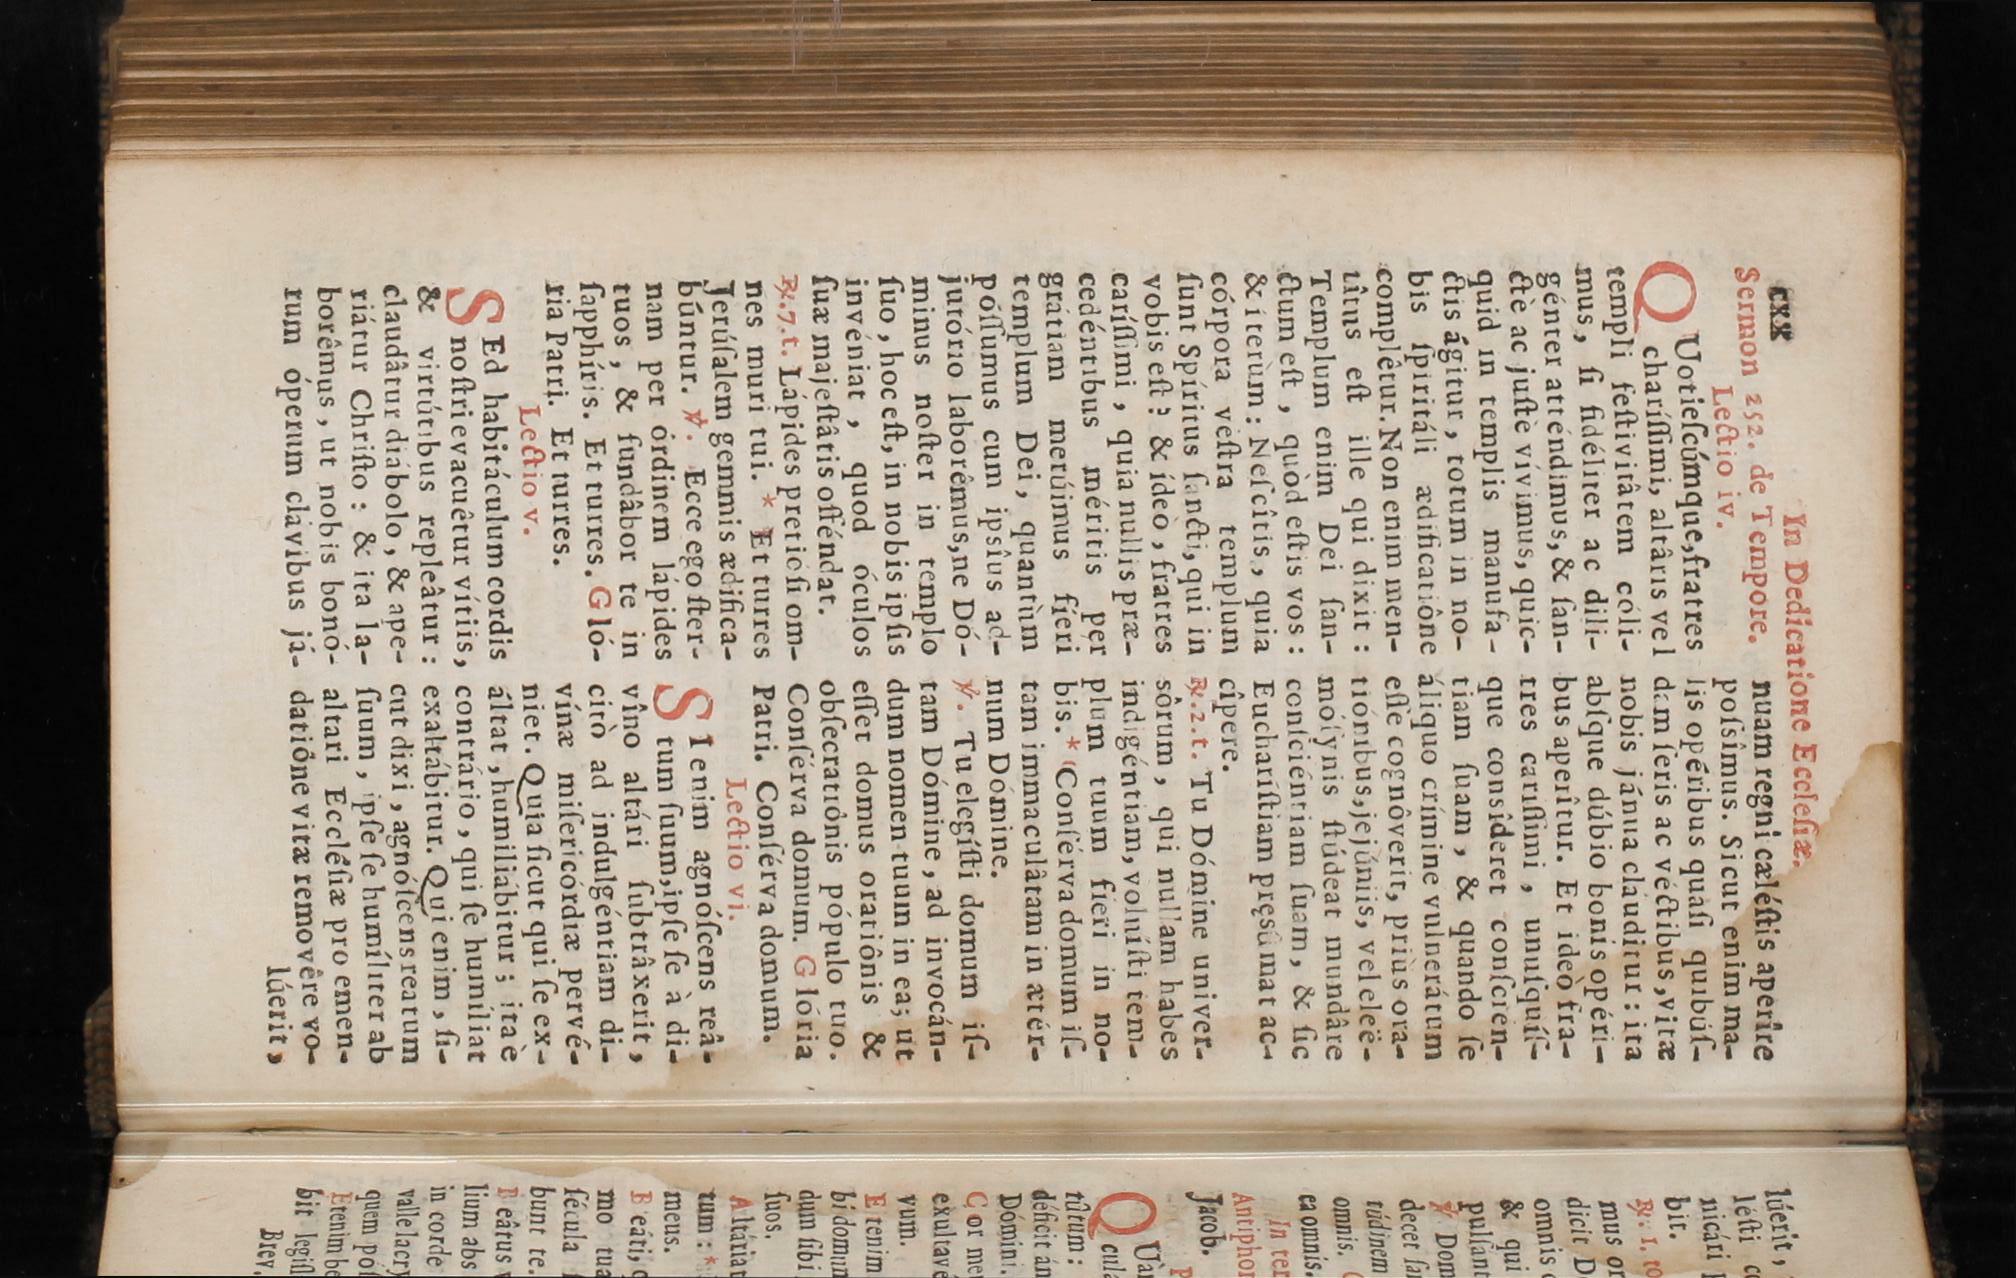 cxx
In Dedicatione Ecclesiæ.
Sermon 252. de Tempore.
Lectio iv.
QUotieſcúmque, fratres
chariſſimi, altâris vel
templi feſtivitâtem cóli-
mus, ſi fidéliter ac dili-
génter atténdimus, & ſan-
ctè ac juſtè vívimus, quic-
quid in templis manufa-
ctis ágitur, totum in no-
bis ſpiritáli ædificatiône
complêtur. Non enim men-
tîtus eſt ille qui dixit:
Templum enim Dei ſan-
ctum eſt, quòd eſtis vos:
& iterùm: Neſcîtis, quia
córpora veſtra templum
ſunt Spíritus ſancti, qui in
vobis eſt? & ídeò, fratres
caríſſimi, quia nullis præ-
cedéntibus méritis per
grátiam merúimus fíeri
templum Dei, quantùm
póſſumus cum ipsîus ad-
jutório laborêmus, ne Dó-
minus noſter in templo
ſuo, hoc eſt, in nobis ipſis
invéniat, quod óculos
ſuæ majeſtâtis offéndat.
℟. 7. t. Lápides pretioſi om-
nes muri tui. * Et turres
Jerúſalem gemmis ædifica-
búntur. ℣. Ecce ego ſter-
nam per órdinem lápides
tuos, & fundâbor te in
ſapphíris. Et turres. Gló-
ria Patri. Et turres.
Lectio v.
SEd habitáculum cordis
noſtri evacuêtur vítiis,
& virtútibus repleâtur:
claudâtur diábolo, & ape-
riátur Chriſto: & ita la-
borêmus, ut nobis bonó-
rum óperum clavibus já-
nuam regni cæléſtis aperîre
poſsîmus. Sicut enim ma-
lis opéribus quaſi quibúſ-
dam ſeris ac véctibus, vitæ
nobis jánua cláuditur: ita
abſque dúbio bonis opéri-
bus aperîtur. Et ideò fra-
tres cariſſimi, unuſquíſ-
que consîderet conſcien-
tiam ſuam, & quando ſe
áliquo crímine vulnerátum
eſſe cognôverit, priùs ora-
tiónibus, jejúniis, vel eleë-
móſynis ſtúdeat mundâre
conſciéntiam ſuam, & ſic
Euchariſtiam pręsûmat ac-
cîpere.
℟. 2. t. Tu Dómine univer-
sôrum, qui nullam habes
indigéntiam, voluíſti tem-
plum tuum fieri in no-
bis. * Conſérva domum iſ-
tam immaculâtam in ætér-
num Dómine.
℣. Tu elegíſti domum iſ-
tam Dómine, ad invocán-
dum nomen tuum in ea; ut
eſſet domus oratiônis &
obſecratiônis pópulo tuo.
Conſérva domum. Glória
Patri. Conſérva domum.
Lectio vi.
SI enim agnóſcens reâ-
tum ſuum, ipſe ſe à di-
vîno altári ſubtrâxerit,
citò ad indulgéntiam di-
vínæ miſericórdiæ pervé-
niet. Quia ſicut qui ſe ex-
áltat, humiliábitur; ita è
contrário, qui ſe humíliat
exaltábitur. Qui enim, ſi-
cut dixi, agnóſcens reatum
ſuum, ipſe ſe humíliter ab
altari Eccléſiæ pro emen-
datiône vitæ removêre vo-
lúerit,
lúerit,
léſti
nicári
bit.
℟. 1. to
mus or
dicit D
omnis
& qui
pulſánt
℣. Dom
decet
túdinem
omnis.
ea omnis.
In ter
Antiphon
Jacob.
QUàm
tûtum:
déficit án
Dómini.
Cor meu
exultavé
vum.
Etenim
bi domum
dum ſibi
ſuos.
Altária t
tum: *
meus.
Beáti, q
mo tua
ſécula
bunt te.
Beâtus v
lium abs
in corde
valle lacry
quem póſ
Etenim be
bit legiſl
Brev.